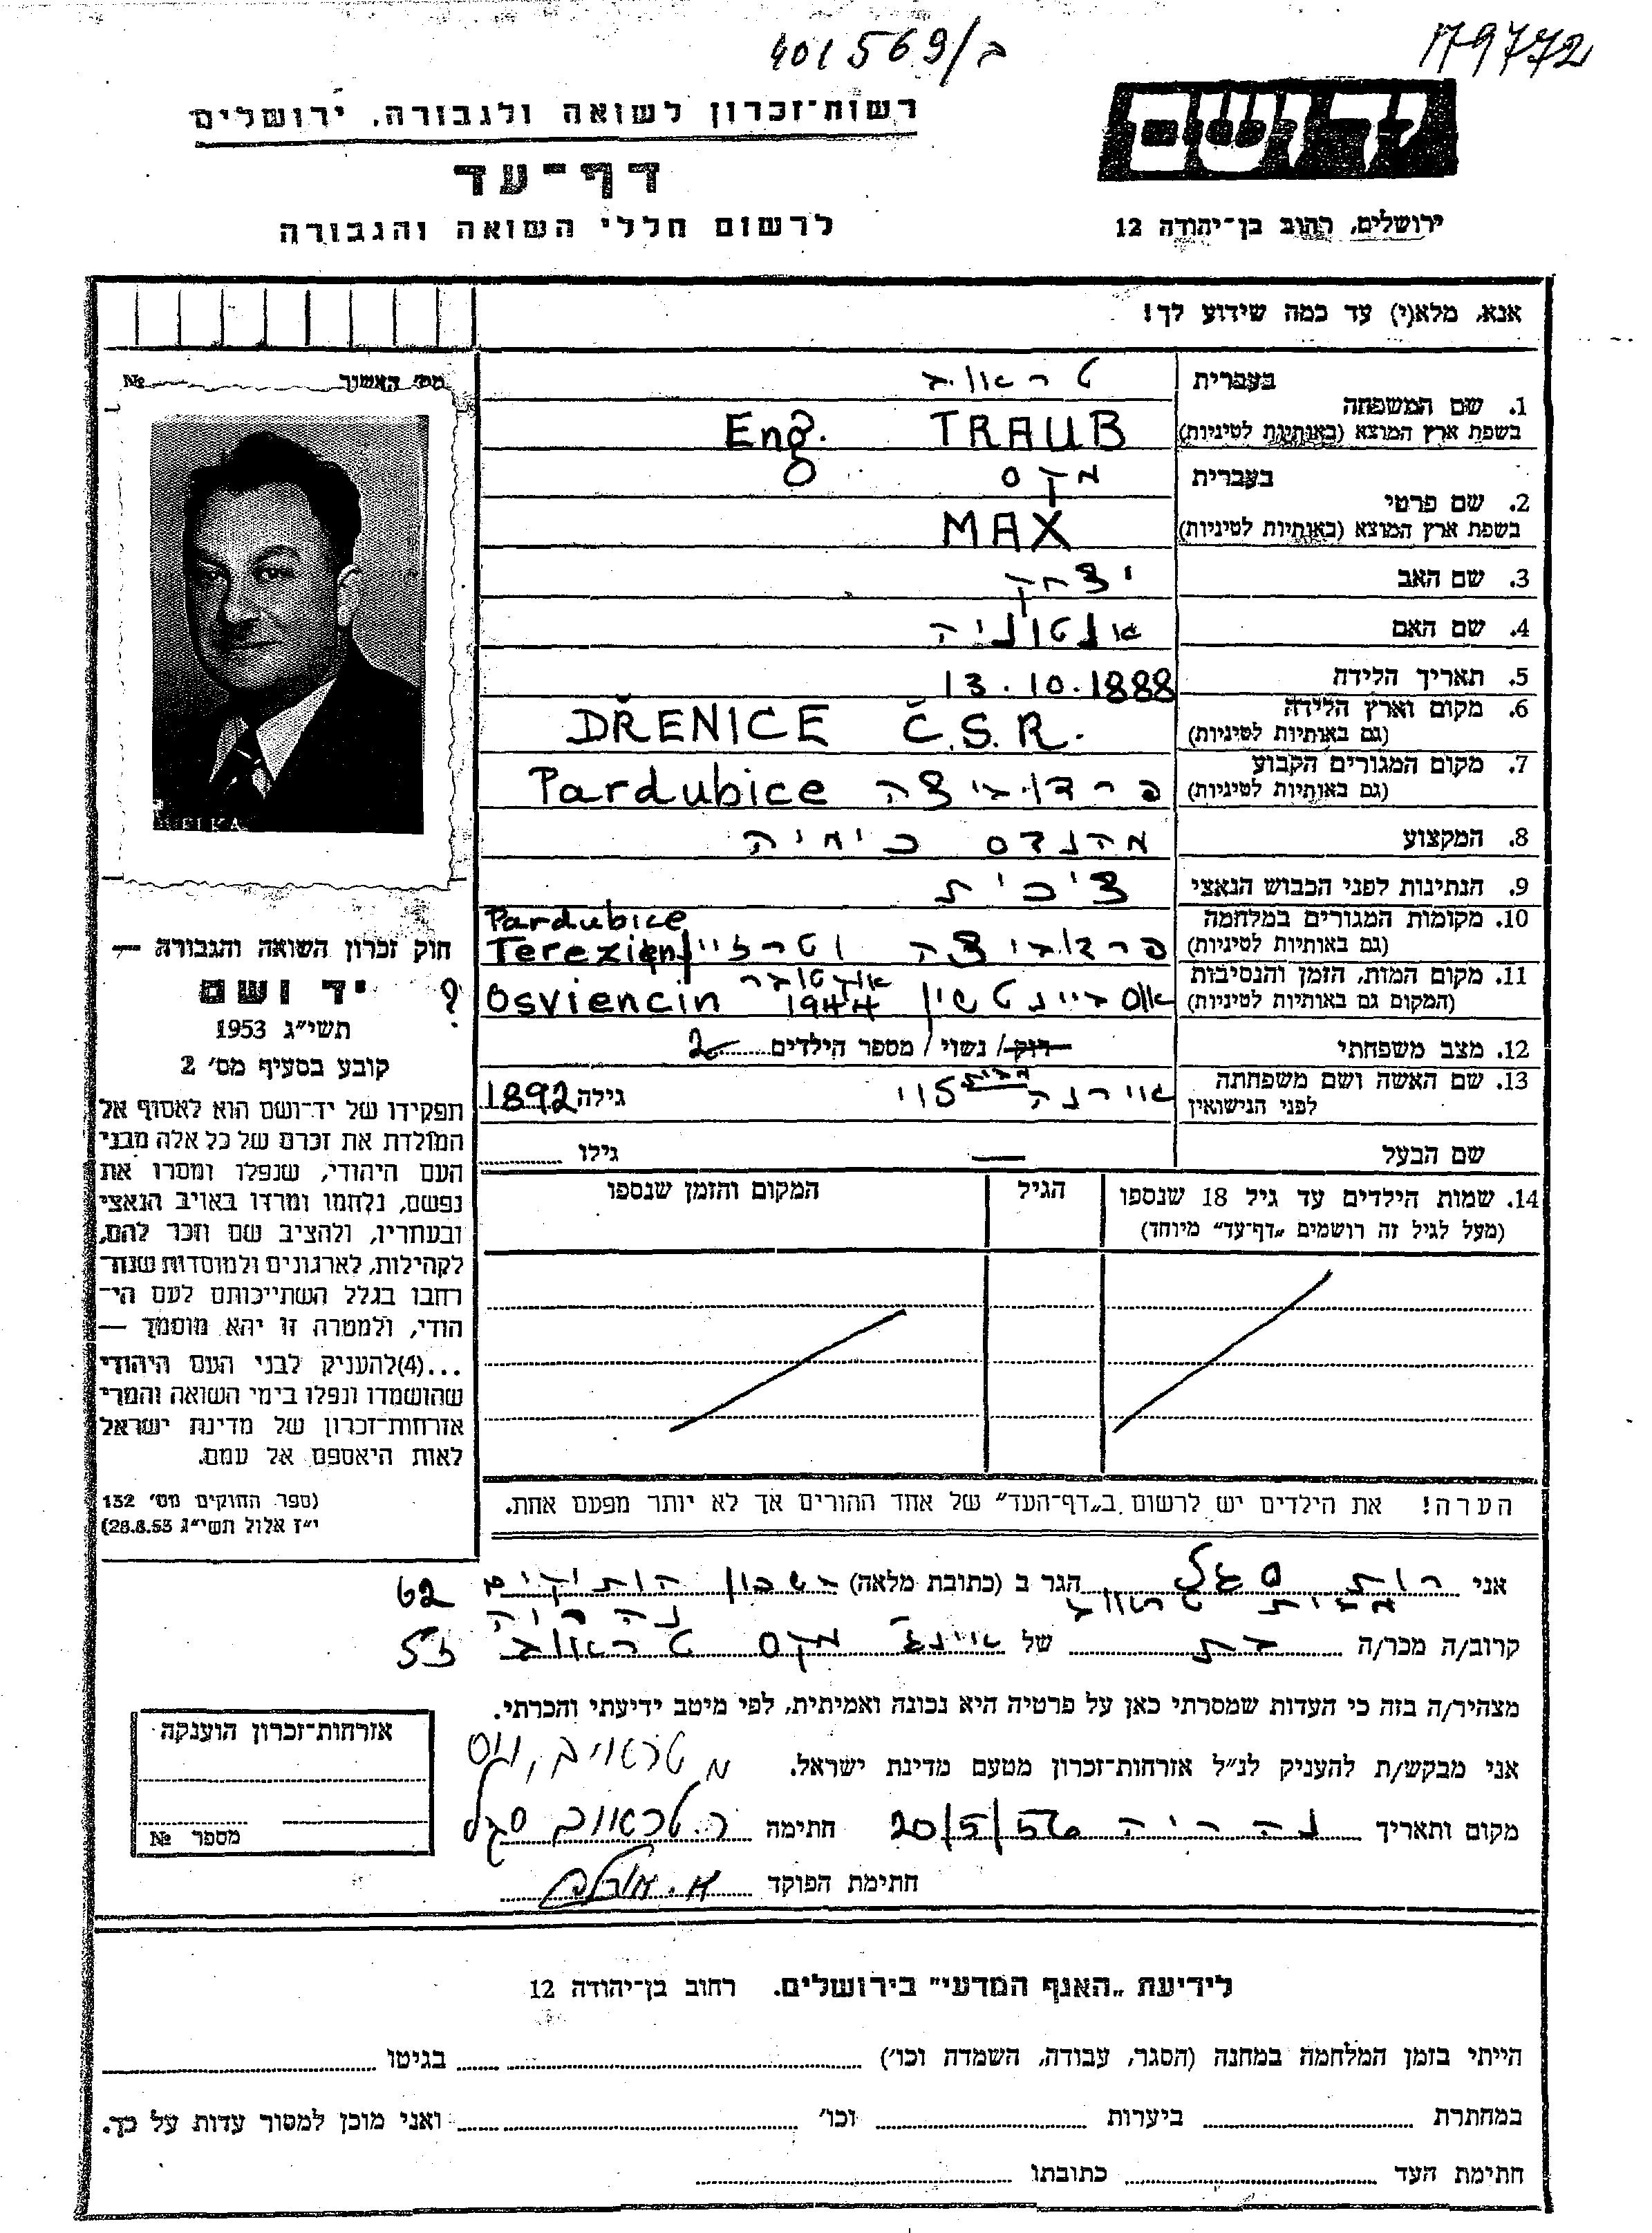 401569/ב
179772
רשות-זכרון לשואה ולגבורה, ירושלים
דף-עד
לרשום חללי השואה והגבורה
יד ושם
ירושלים, רחוב בן-יהודה 12
אנא, מלא(י) עד כמה שידוע לך!
1. שם המשפחה
בעברית
טראוב
בשפת ארץ המוצא (באותיות לטיניות)
Eng. TRAUB
2. שם פרטי
בעברית
מקס
בשפת ארץ המוצא (באותיות לטיניות)
MAX
3. שם האב יצחק
4. שם האם אנטוניה
5. תאריך הלידה 13.10.1888
6. מקום וארץ הלידה
(גם באותיות לטיניות)
DŘENICE Č.S.R.
7. מקום המגורים הקבוע
(גם באותיות לטיניות)
פרדוביצה Pardubice
8. המקצוע מהנדס כימיה
9. הנתינות לפני הכבוש הנאצי צ'כית
10. מקומות המגורים במלחמה
(גם באותיות לטיניות)
Pardubice
פרדוביצה וטרזיין Terezien
11. מקום המות, הזמן והנסיבות
(המקום גם באותיות לטיניות)
אוסביינטשין אוקטובר 1944 Osviencin ?
12. מצב משפחתי רוק/ נשוי / מספר הילדים 2
13. שם האשה ושם משפחתה
לפני הנישואין
אירנה מבית לוי גילה 1892
שם הבעל — גילו
14. שמות הילדים עד גיל 18 שנספו
(מעל לגיל זה רושמים „דף-עד" מיוחד)
הגיל
המקום והזמן שנספו
הערה! את הילדים יש לרשום ב„דף-העד" של אחד ההורים אך לא יותר מפעם אחת.
מס' האשור №
חוק זכרון השואה והגבורה —
יד ושם
תשי"ג 1953
קובע בסעיף מס' 2
תפקידו של יד-ושם הוא לאסוף אל
המולדת את זכרם של כל אלה מבני
העם היהודי, שנפלו ומסרו את
נפשם, נלחמו ומרדו באויב הנאצי
ובעוזריו, ולהציב שם וזכר להם,
לקהילות, לארגונים ולמוסדות שנח-
רבו בגלל השתייכותם לעם הי-
הודי, ולמטרה זו יהא מוסמך —
...(4)להעניק לבני העם היהודי
שהושמדו ונפלו בימי השואה והמרי
אזרחות-זכרון של מדינת ישראל
לאות היאספם אל עמם.
(ספר החוקים מס' 132
י"ז אלול תשי"ג 28.8.53)
אני רות סגל הגר ב (כתובת מלאה) שכון הותיקים 62
מבית טראוב נהריה
קרוב/ה מכר/ה בת של אינג' מקס טראוב 53
מצהיר/ה בזה כי העדות שמסרתי כאן על פרטיה היא נכונה ואמיתית, לפי מיטב ידיעתי והכרתי.
אני מבקש/ת להעניק לנ"ל אזרחות-זכרון מטעם מדינת ישראל.
מקום ותאריך נהריה 20/5/56 חתימה ר. טראוב סגל
חתימת הפוקד
אזרחות-זכרון הוענקה
מספר №
לידיעת „האגף המדעי" בירושלים. רחוב בן-יהודה 12
הייתי בזמן המלחמה במחנה (הסגר, עבודה, השמדה וכו') בגיטו
במחתרת ביערות וכו' ואני מוכן למסור עדות על כך.
חתימת העד כתובתו